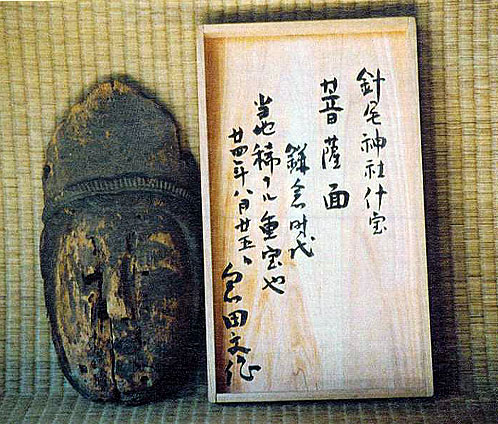 針尾神社什宝
菩薩面
鎌倉時代
当地稀ナル重宝也
廿四年八月廿五日
倉田文作